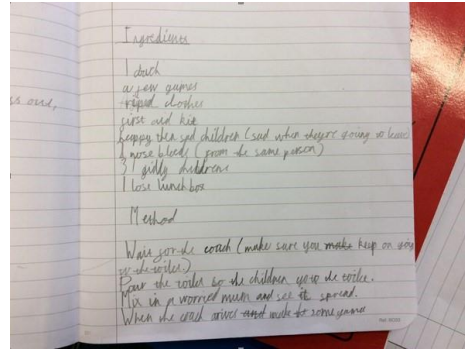 Ingredients
1 coach
a few games
riped clothes
first aid kit
happy then sad children (sad when they're going to leave)
nose bleeds (from the same person)
31 giddy childrens
1 lose lunchbox
Method
Wait for the coach (make sure you make keep on
to the toilet.)
Pour the toilet so the children go to the toilet.
Mix in a worried mum and see it spread.
When the coach arives and make some games